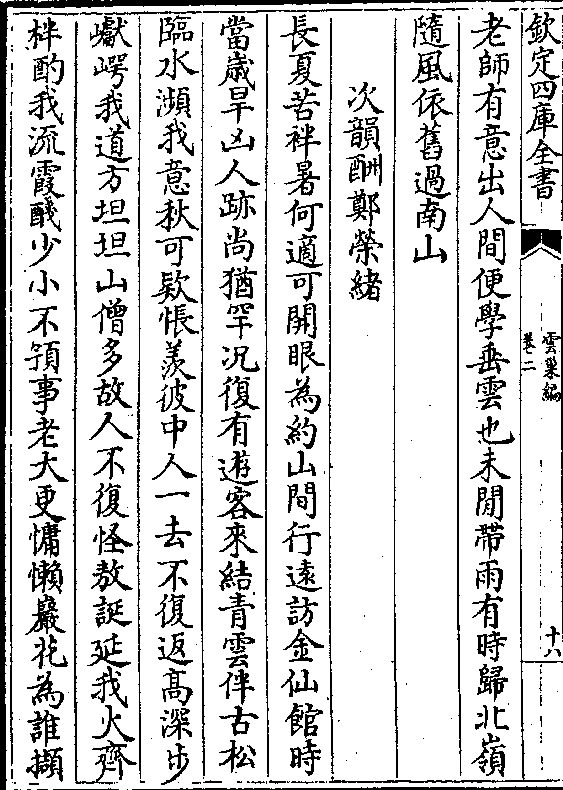 欽定四庫全書
雲巢編
卷二
十八
老師有意出人間便學垂雲也未閒帶雨有時歸北嶺
隨風依舊過南山
次韻酬鄭榮緒
長夏苦袢暑何適可開眼為約山間行遠訪金仙館時
當歲旱凶人跡尚猶罕況復有遊客來結青雲伴古松
臨水瀕我意秋可欵悵羨彼中人一去不復返高深步
巘崿我道方坦坦山僧多故人不復怪敖誕延我火齊
柈酌我流霞醆少小不領事老大更慵懶巖花為誰擷